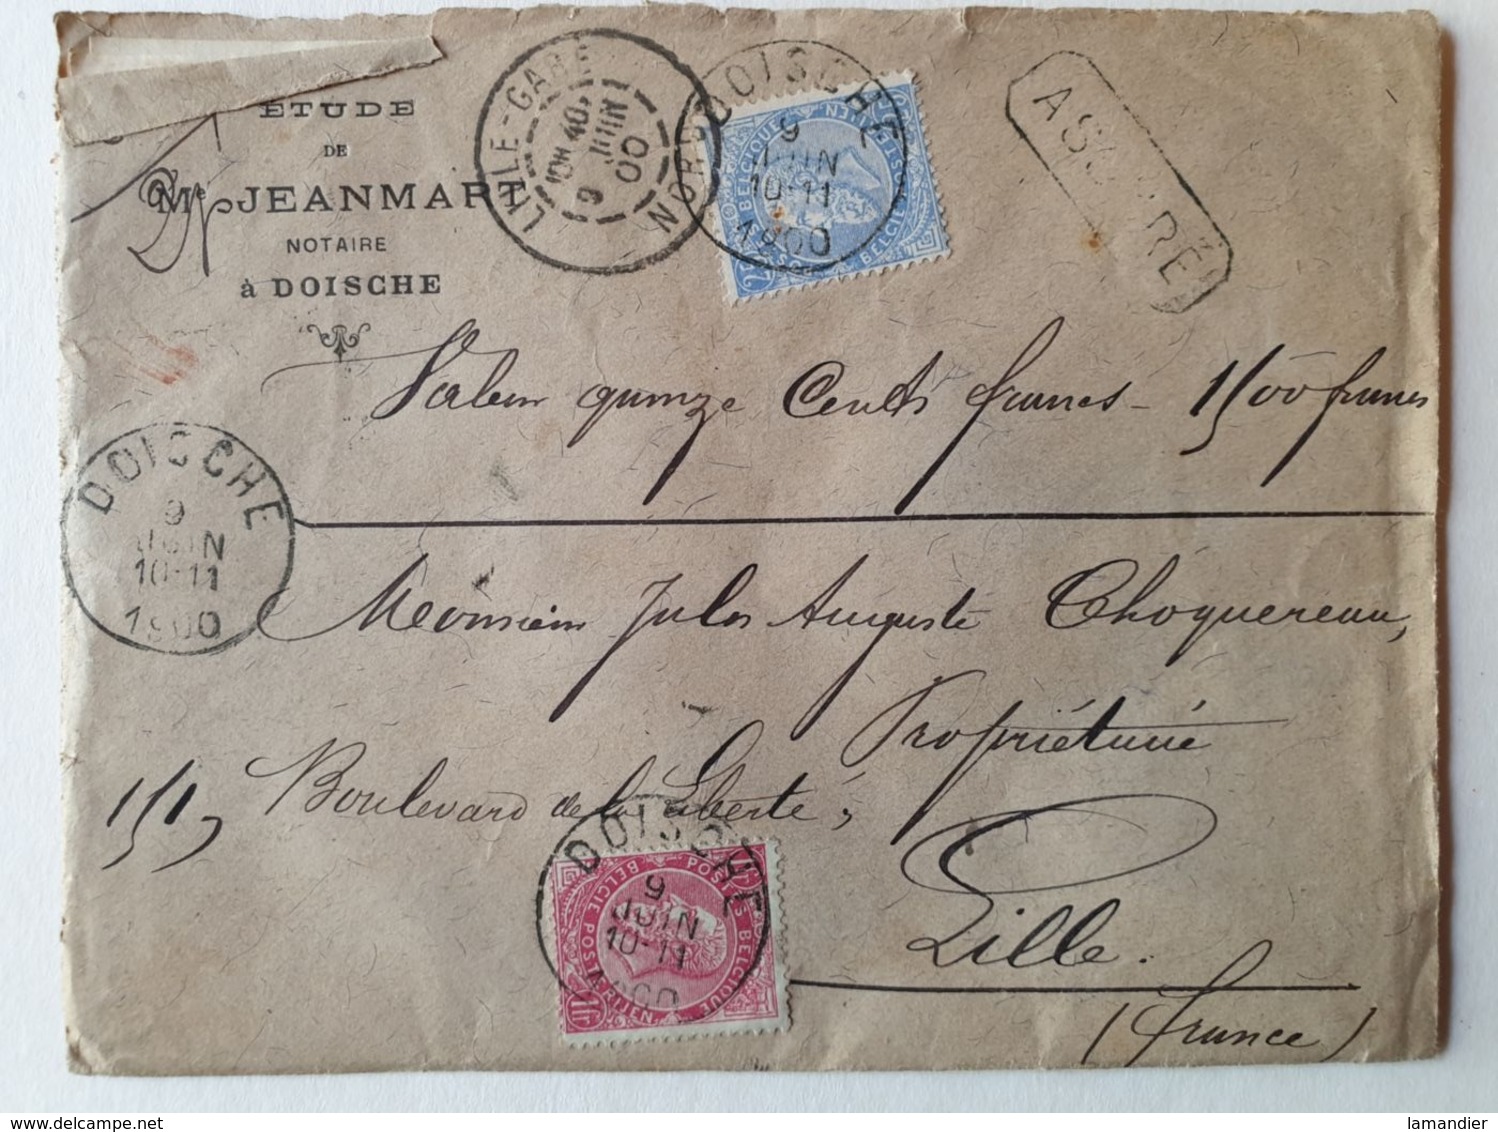 ETUDE
DE
Me JEANMART
NOTAIRE
à DOISCHE
LILLE-GARE
10H 40
9
JUIN
00
NORD
DOISCHE
9
JUIN
10-11
1900
BELGIQUE
BELGIE
ASSURÉ
Valeur quinze Cents francs - 1500 francs
DOISCHE
9
JUIN
10-11
1900
Monsieur Jules Auguste Choquereau,
Propriétaire
151, Boulevard de la Liberté,
Lille.
(France)
DOISCHE
9
JUIN
10-11
1900
POSTES BELGIQUE
BELGIE POSTERIJEN
1 Fr
delcampe.net
lamandier